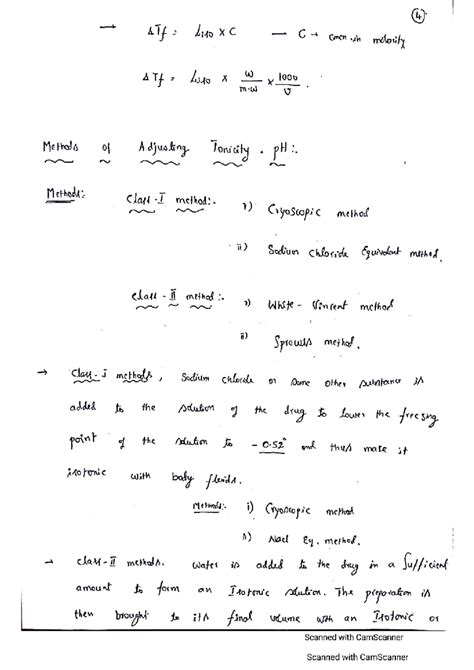 4
→ ΔTf = Liso × C — C → concn in molarity
ΔTf = Liso × w/m.w × 1000/v .
Methods of Adjusting Tonicity . pH :.
Methods:- Class - I method :- i) Cryoscopic method
ii) Sodium chloride Equivalent method.
class - II method :- i) White - Vincent method
ii) Sprowls method.
→ Class- I methods, Sodium chloride or some other substance is
added to the solution of the drug to lower the freezing
point of the solution to - 0.52° and thus make it
isotonic with body fluids.
Methods:- i) Cryoscopic method
ii) Nacl Eq. method.
→ class-II methods. water is added to the drug in a Sufficient
amount to form an Isotonic solution. The preparation is
then brought to its final volume with an Isotonic or
Scanned with CamScanner
Scanned with CamScanner